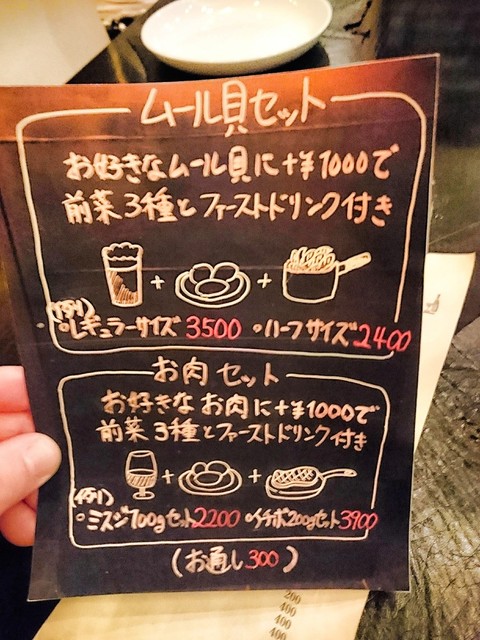 ムール貝セット
お好きなムール貝に+¥1000で
前菜3種とファーストドリンク付き
+ +
(例)
・レギュラーサイズ 3500 ・ハーフサイズ2400
お肉セット
お好きなお肉に+¥1000で
前菜3種とファーストドリンク付き
+ +
(例)
・ミスジ100gセット2200 ・イチボ200gセット3900
(お通し300)
200
400
400
400